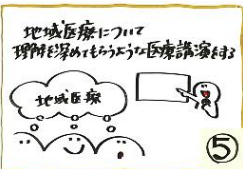 地域医療について
理解を深めてもらうような医療講演をする
地域医療
⑤